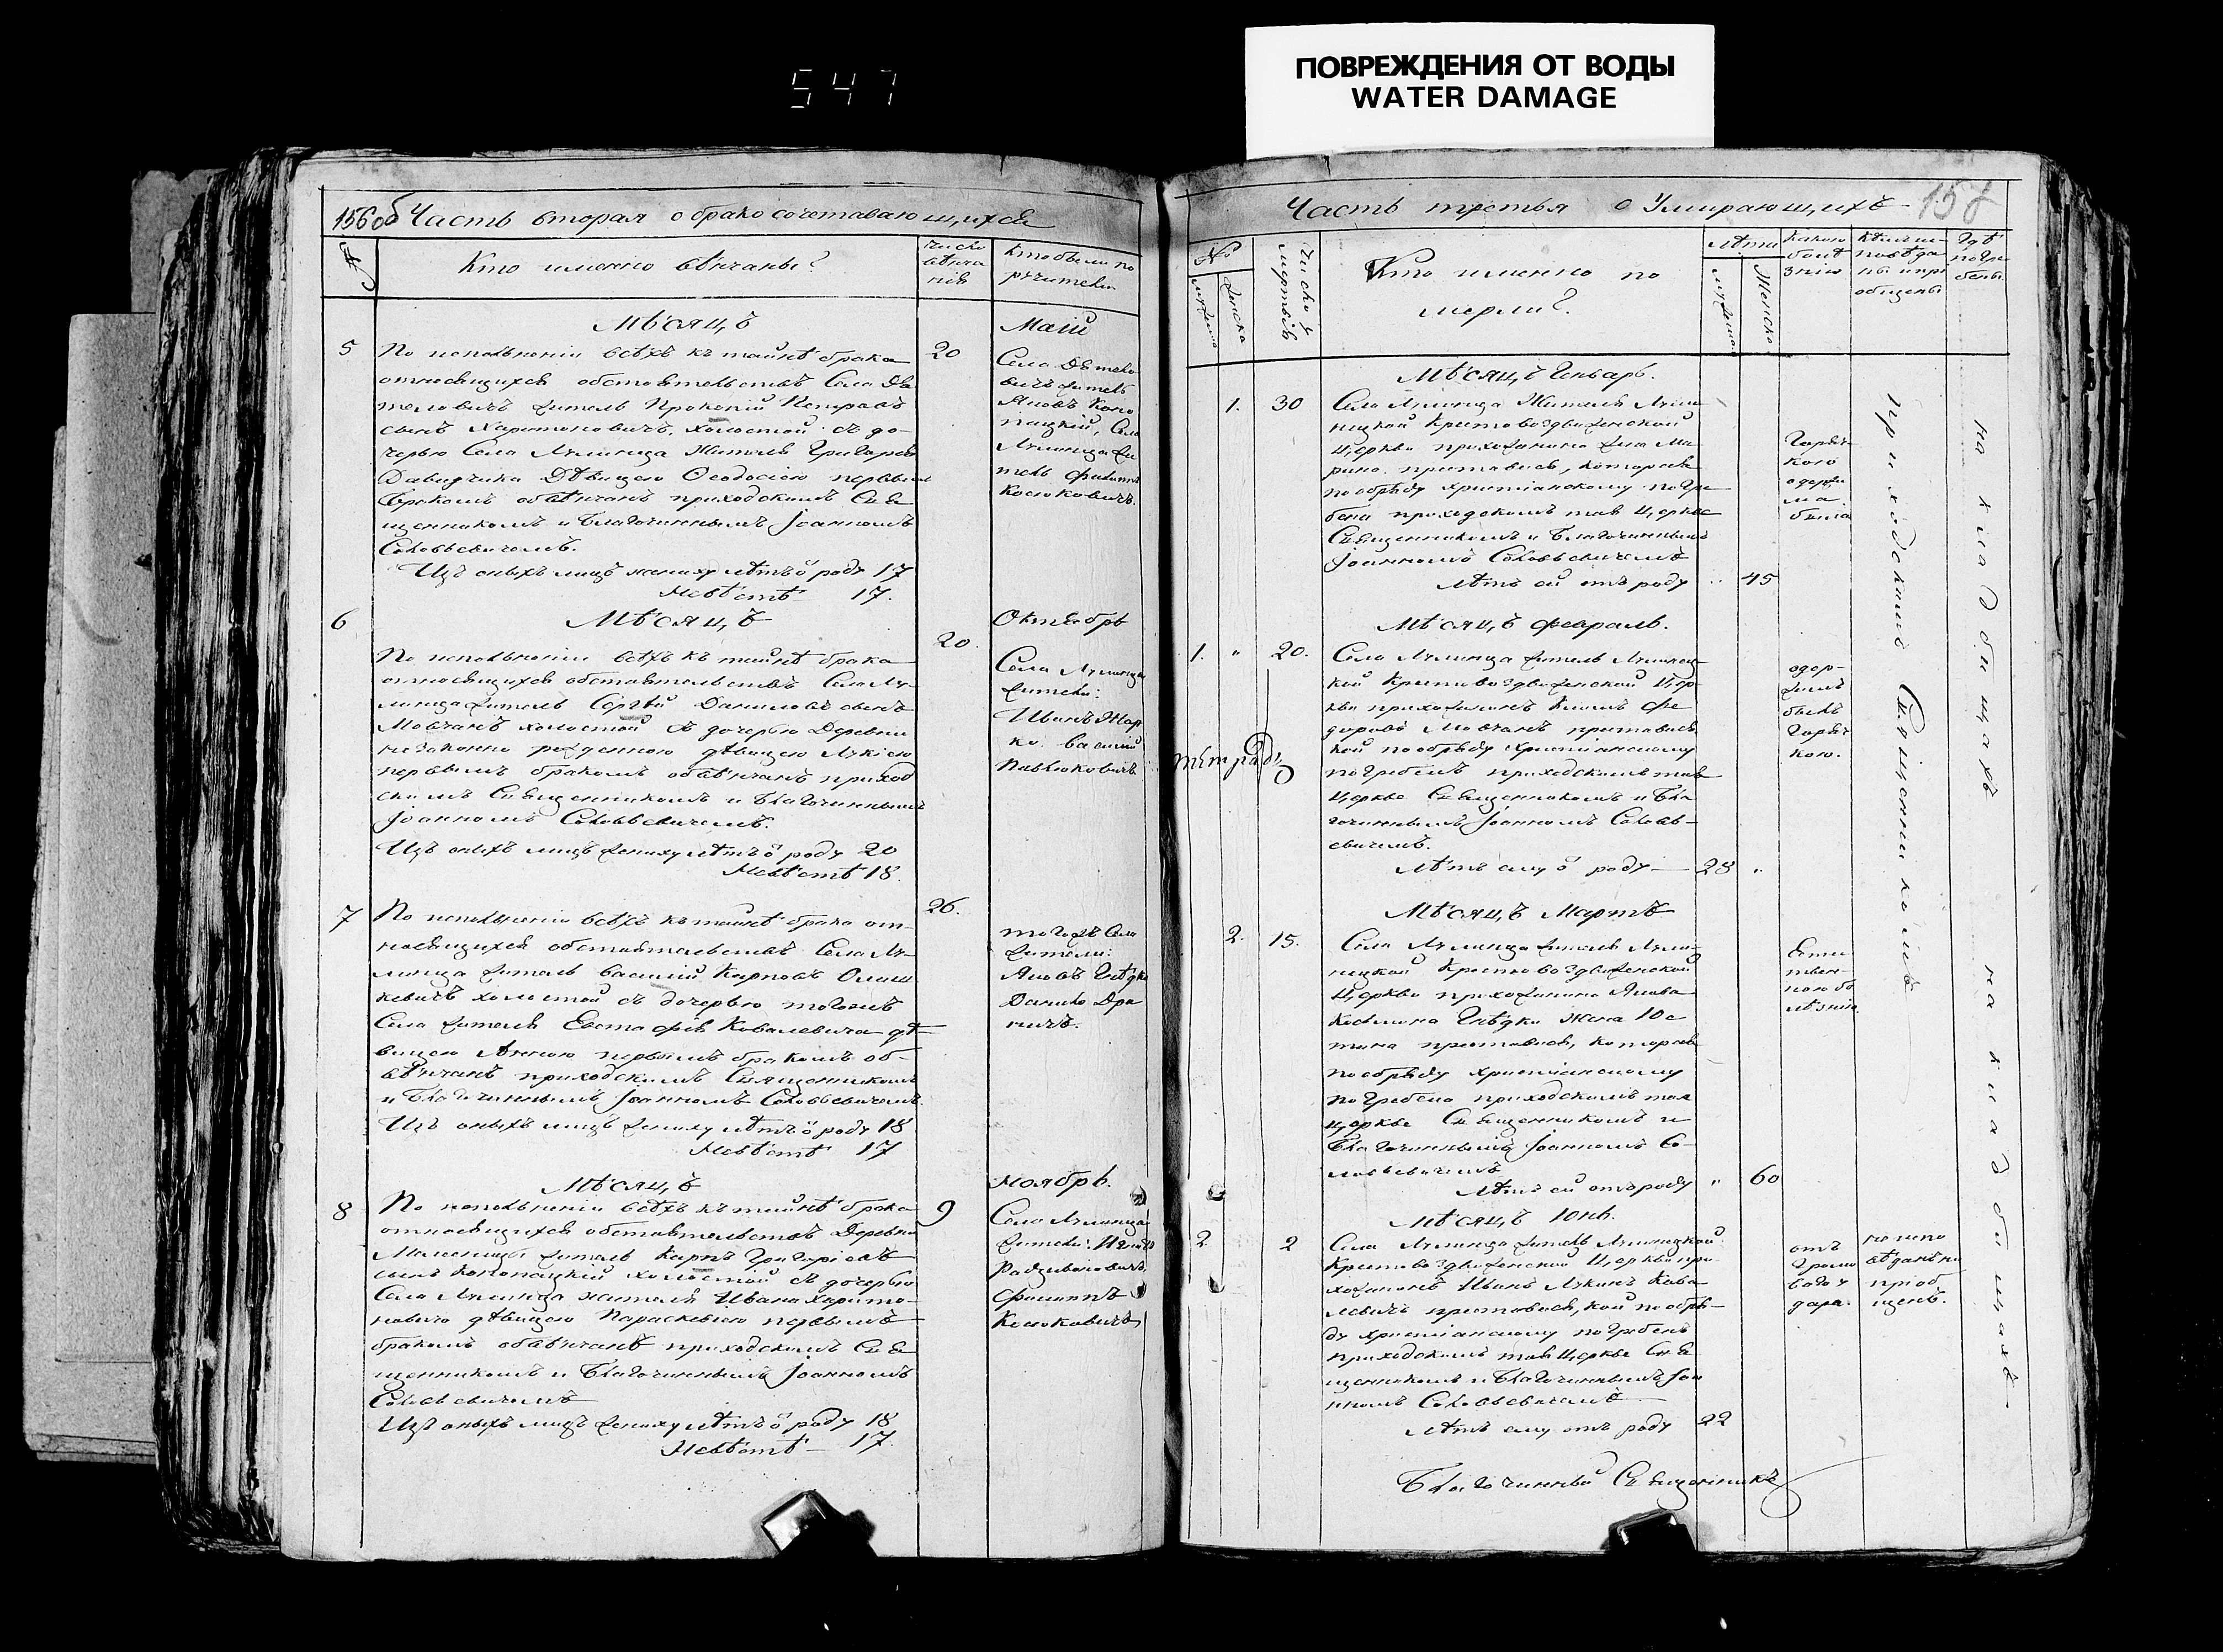 547
ПОВРЕЖДЕНИЯ ОТ ВОДЫ
WATER DAMAGE
156об Часть вторая о бракосочетавающихся
Кто именно вѣнчаны?
Число
вѣнча
нія
Кто были по
ручители
Мѣсяцъ
Маій
5
20
По исполненіи всѣхъ къ тайнѣ брака
относящихся обстоятельствъ Села
житель Прокопій Петровъ
сынъ Харитоновичъ, холостой съ до-
черью Села Лулинца Жителя Григорія
Давидчика Дѣвицею Ѳеодосіею первымъ
бракомъ обвѣнчанъ приходскимъ Свя
щенникомъ и Благочиннымъ Іоанномъ
Соловьевичемъ.
Изъ оныхъ лицъ жениху лѣтъ о роду 17
Невѣстѣ 17.
Села
житель
Яковъ Коно
пацкій, Села
Лулинца жи
тель Филиппъ
Косюковичъ.
6
Мѣсяцъ
Октябрь
20.
По исполненіи всѣхъ къ тайнѣ брака
относящихся обстоятельствъ Села Лу-
линца житель Сергѣй Даниловъ сынъ
Мовчанъ холостой съ дочерью Деревни
незаконно рожденною дѣвицею Лукіею
первымъ бракомъ обвѣнчанъ приход
скимъ Священникомъ и Благочиннымъ
Іоанномъ Соловьевичемъ.
Изъ оныхъ лицъ жениху лѣтъ о роду 20
Невѣстѣ 18.
Села Лулинца
жители:
Иванъ
Василій
Павлюковичъ
7
26.
По исполненіи всѣхъ къ тайнѣ брака от-
носящихся обстоятельствъ Села Лу-
линца житель Василій Карповъ
холостой съ дочерью тогожъ
Села жителя Евстафія Ковалевича дѣ-
вицею Анною первымъ бракомъ об-
вѣнчанъ приходскимъ Священникомъ
и Благочиннымъ Іоанномъ Соловьевичемъ.
Изъ оныхъ лицъ жениху лѣтъ о роду 18
Невѣстѣ 17
тогожъ Села
жители:
Яковъ Гнѣдко
Данило Дра
ничъ.
Мѣсяцъ
Ноябрь.
8
9
По исполненіи всѣхъ къ тайнѣ брака
относящихся обстоятельствъ Деревни
житель Карпъ Григоріевъ
сынъ Конопацкій холостой съ дочерью
Села Лулинца жителя Ивана Харито-
новича дѣвицею Параскевіею первымъ
бракомъ обвѣнчанъ приходскимъ Свя
щенникомъ и Благочиннымъ Іоанномъ
Соловьевичемъ
Изъ оныхъ лицъ жениху лѣтъ о роду 18
Невѣстѣ 17.
Села Лулинца
жители:
Радзивоновичъ,
Филиппъ
Косюковичъ
Часть третья о Умирающихъ
157
№
Мужеска
Женска
Число у
мертвія
Кто именно по
мерли?
Лѣта
Мужеска
Женска
Какою
болѣ
знію
Кѣмъ ис-
повѣда
ны и прі
общены
Гдѣ
погре
бены
Мѣсяцъ Генварь.
1. 30
Села Лулинца Жителя Лули
ницкой Крестовоздвиженской
церкви прихожанина жена Ма
рина преставися, которая
по обряду христіанскому погре
бена приходскимъ тоя Церкве
Священникомъ и Благочиннымъ
Іоанномъ Соловьевичемъ
Лѣтъ ей отъ роду " 45
Горяч
кою
одержи
ма
была
Мѣсяцъ Февраль.
1. " 20.
Села Лулинца житель Лулинец-
кой Крестовоздвиженской Цер-
кви прихожанинъ Климъ Фе
доровъ Мовчанъ преставися
кой по обряду христіанскому
погребенъ приходскимъ тоя
Церкве Священникомъ и Бла
гочиннымъ Іоанномъ Соловь-
евичемъ.
Лѣтъ ему о роду 28 "
одер-
жимъ
былъ
Горяч
кою.
Мѣсяцъ Мартъ
2. 15.
Села Лулинца жителя Лули-
ницкой Крестовоздвиженской
Церкви прихожанина Якова
Гнѣдки жена Юс
тина преставися, которая
по обряду христіанскому
погребена приходскимъ тоя
церкве Священникомъ и
Благочиннымъ Іоанномъ Со-
ловьевичемъ
Лѣтъ ей отъ роду " 60
Есте
ствен-
ною бо
лѣзнію
Мѣсяцъ Юнь.
2 2
Села Лулинца житель Лулинецкой
Крестовоздвиженской Церкви при
хожанинъ Иванъ Лукинъ Кова
левичъ преставися, кой по обря-
ду христіанскому погребенъ
приходскимъ тоя Церкве Свя
щенникомъ и Благочиннымъ Іоа
нномъ Соловьевичемъ
Лѣтъ ему отъ роду 22
отъ
громо
ваго у
дара.
не испо
вѣданъ ни
пріоб
щенъ.
приходскимъ Священникомъ
на кладбищахъ
на кладбищахъ
Благочинный Священникъ